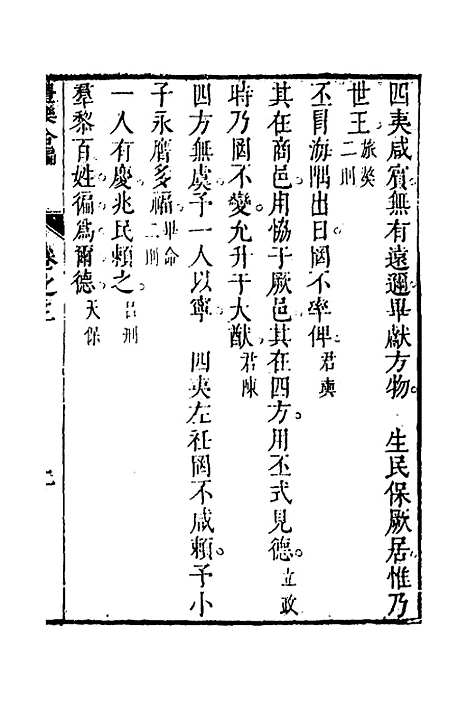 四夷咸賓無有遠邇畢獻方物　生民保厥居惟乃
世王旅獒二則
丕冒海隅出日罔不率俾君奭
其在商邑用協于厥邑其在四方用丕式見德立政
時乃罔不變允升于大猷君陳
四方無虞予一人以寧　四夷左衽罔不咸賴予小
子永膺多福畢命二則
一人有慶兆民賴之呂刑
羣黎百姓徧爲爾德天保
卷之三